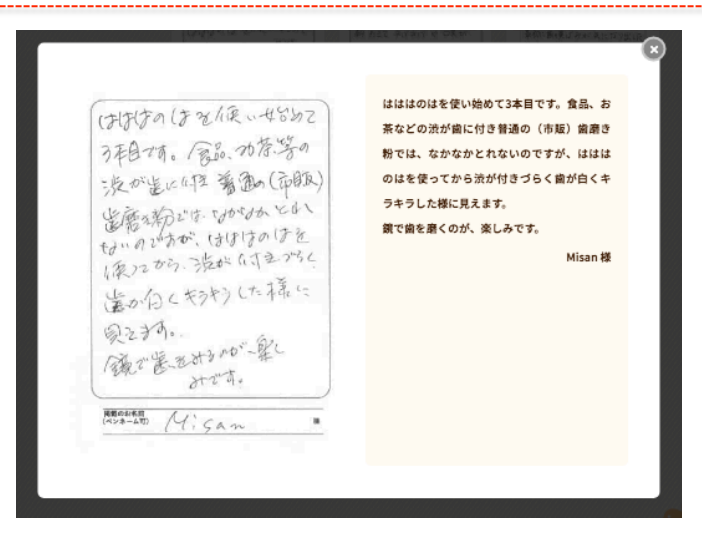 はははのはを使い始めて
3本目です。食品、お茶等の
渋が歯に付き 普通の(市販)
歯磨き粉では、なかなかとれ
ないのですが、はははのはを
使ってから、渋が付きづらく
歯が白くキラキラした様に
見えます。
鏡で歯をみるのが、楽し
みです。
掲載のお名前
(ペンネーム可)
Misan
様
はははのはを使い始めて3本目です。食品、お
茶などの渋が歯に付き普通の（市販）歯磨き
粉では、なかなかとれないのですが、ははは
のはを使ってから渋が付きづらく歯が白くキ
ラキラした様に見えます。
鏡で歯を磨くのが、楽しみです。
Misan 様